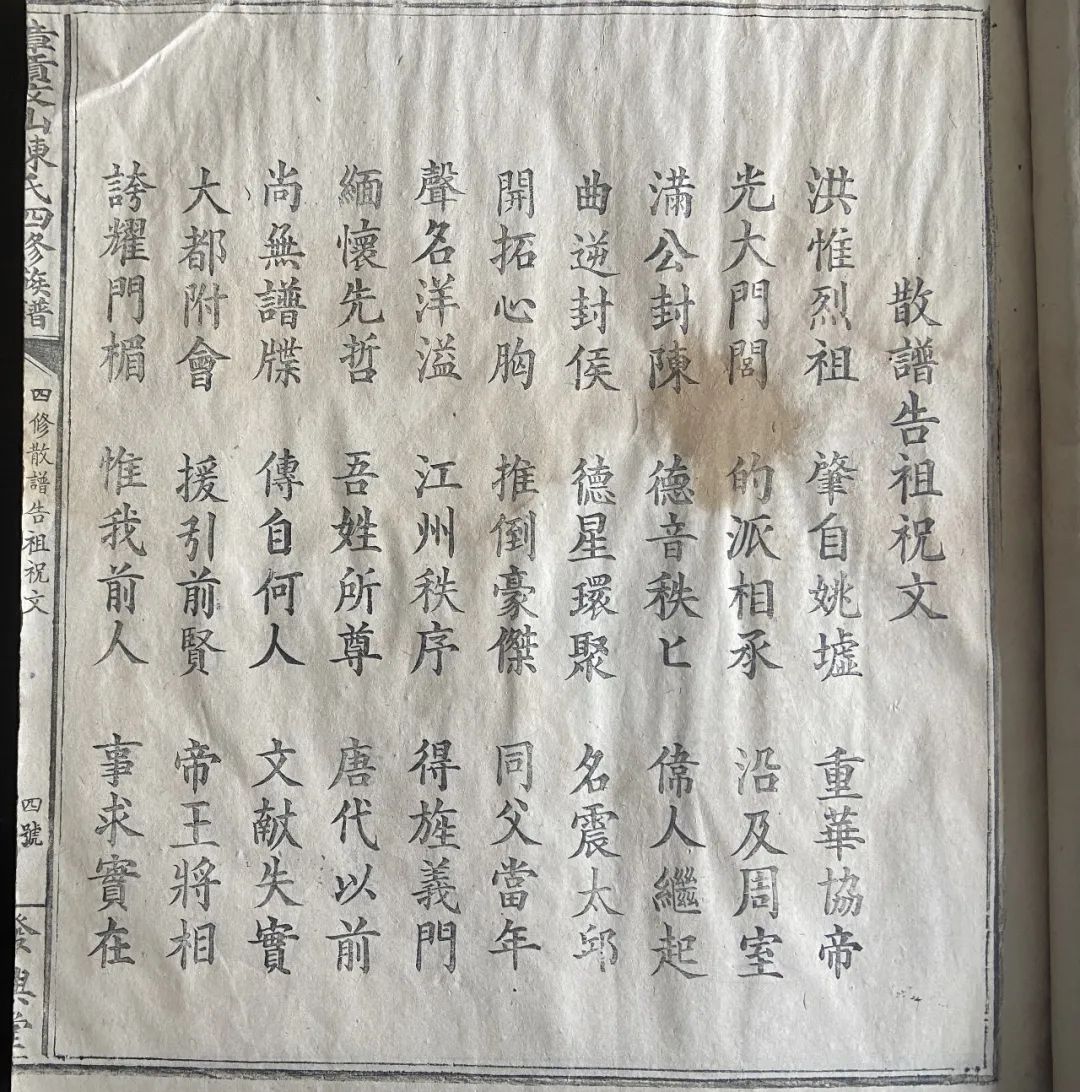 散譜告祖祝文
洪惟烈祖 肇自姚墟 重華協帝
光大門閭 的派相承 沿及周室
滿公封陳 德音秩匕 偉人繼起
曲逆封侯 德星環聚 名震太邱
開拓心胸 推倒豪傑 同父當年
聲名洋溢 江州秩序 得旌義門
緬懷先哲 吾姓所尊 唐代以前
尚無譜牒 傳自何人 文献失實
大都附會 援引前賢 帝王將相
誇耀門楣 惟我前人 事求實在
章貢文山陳氏四修族譜
四修散譜告祖祝文
四號
發興堂